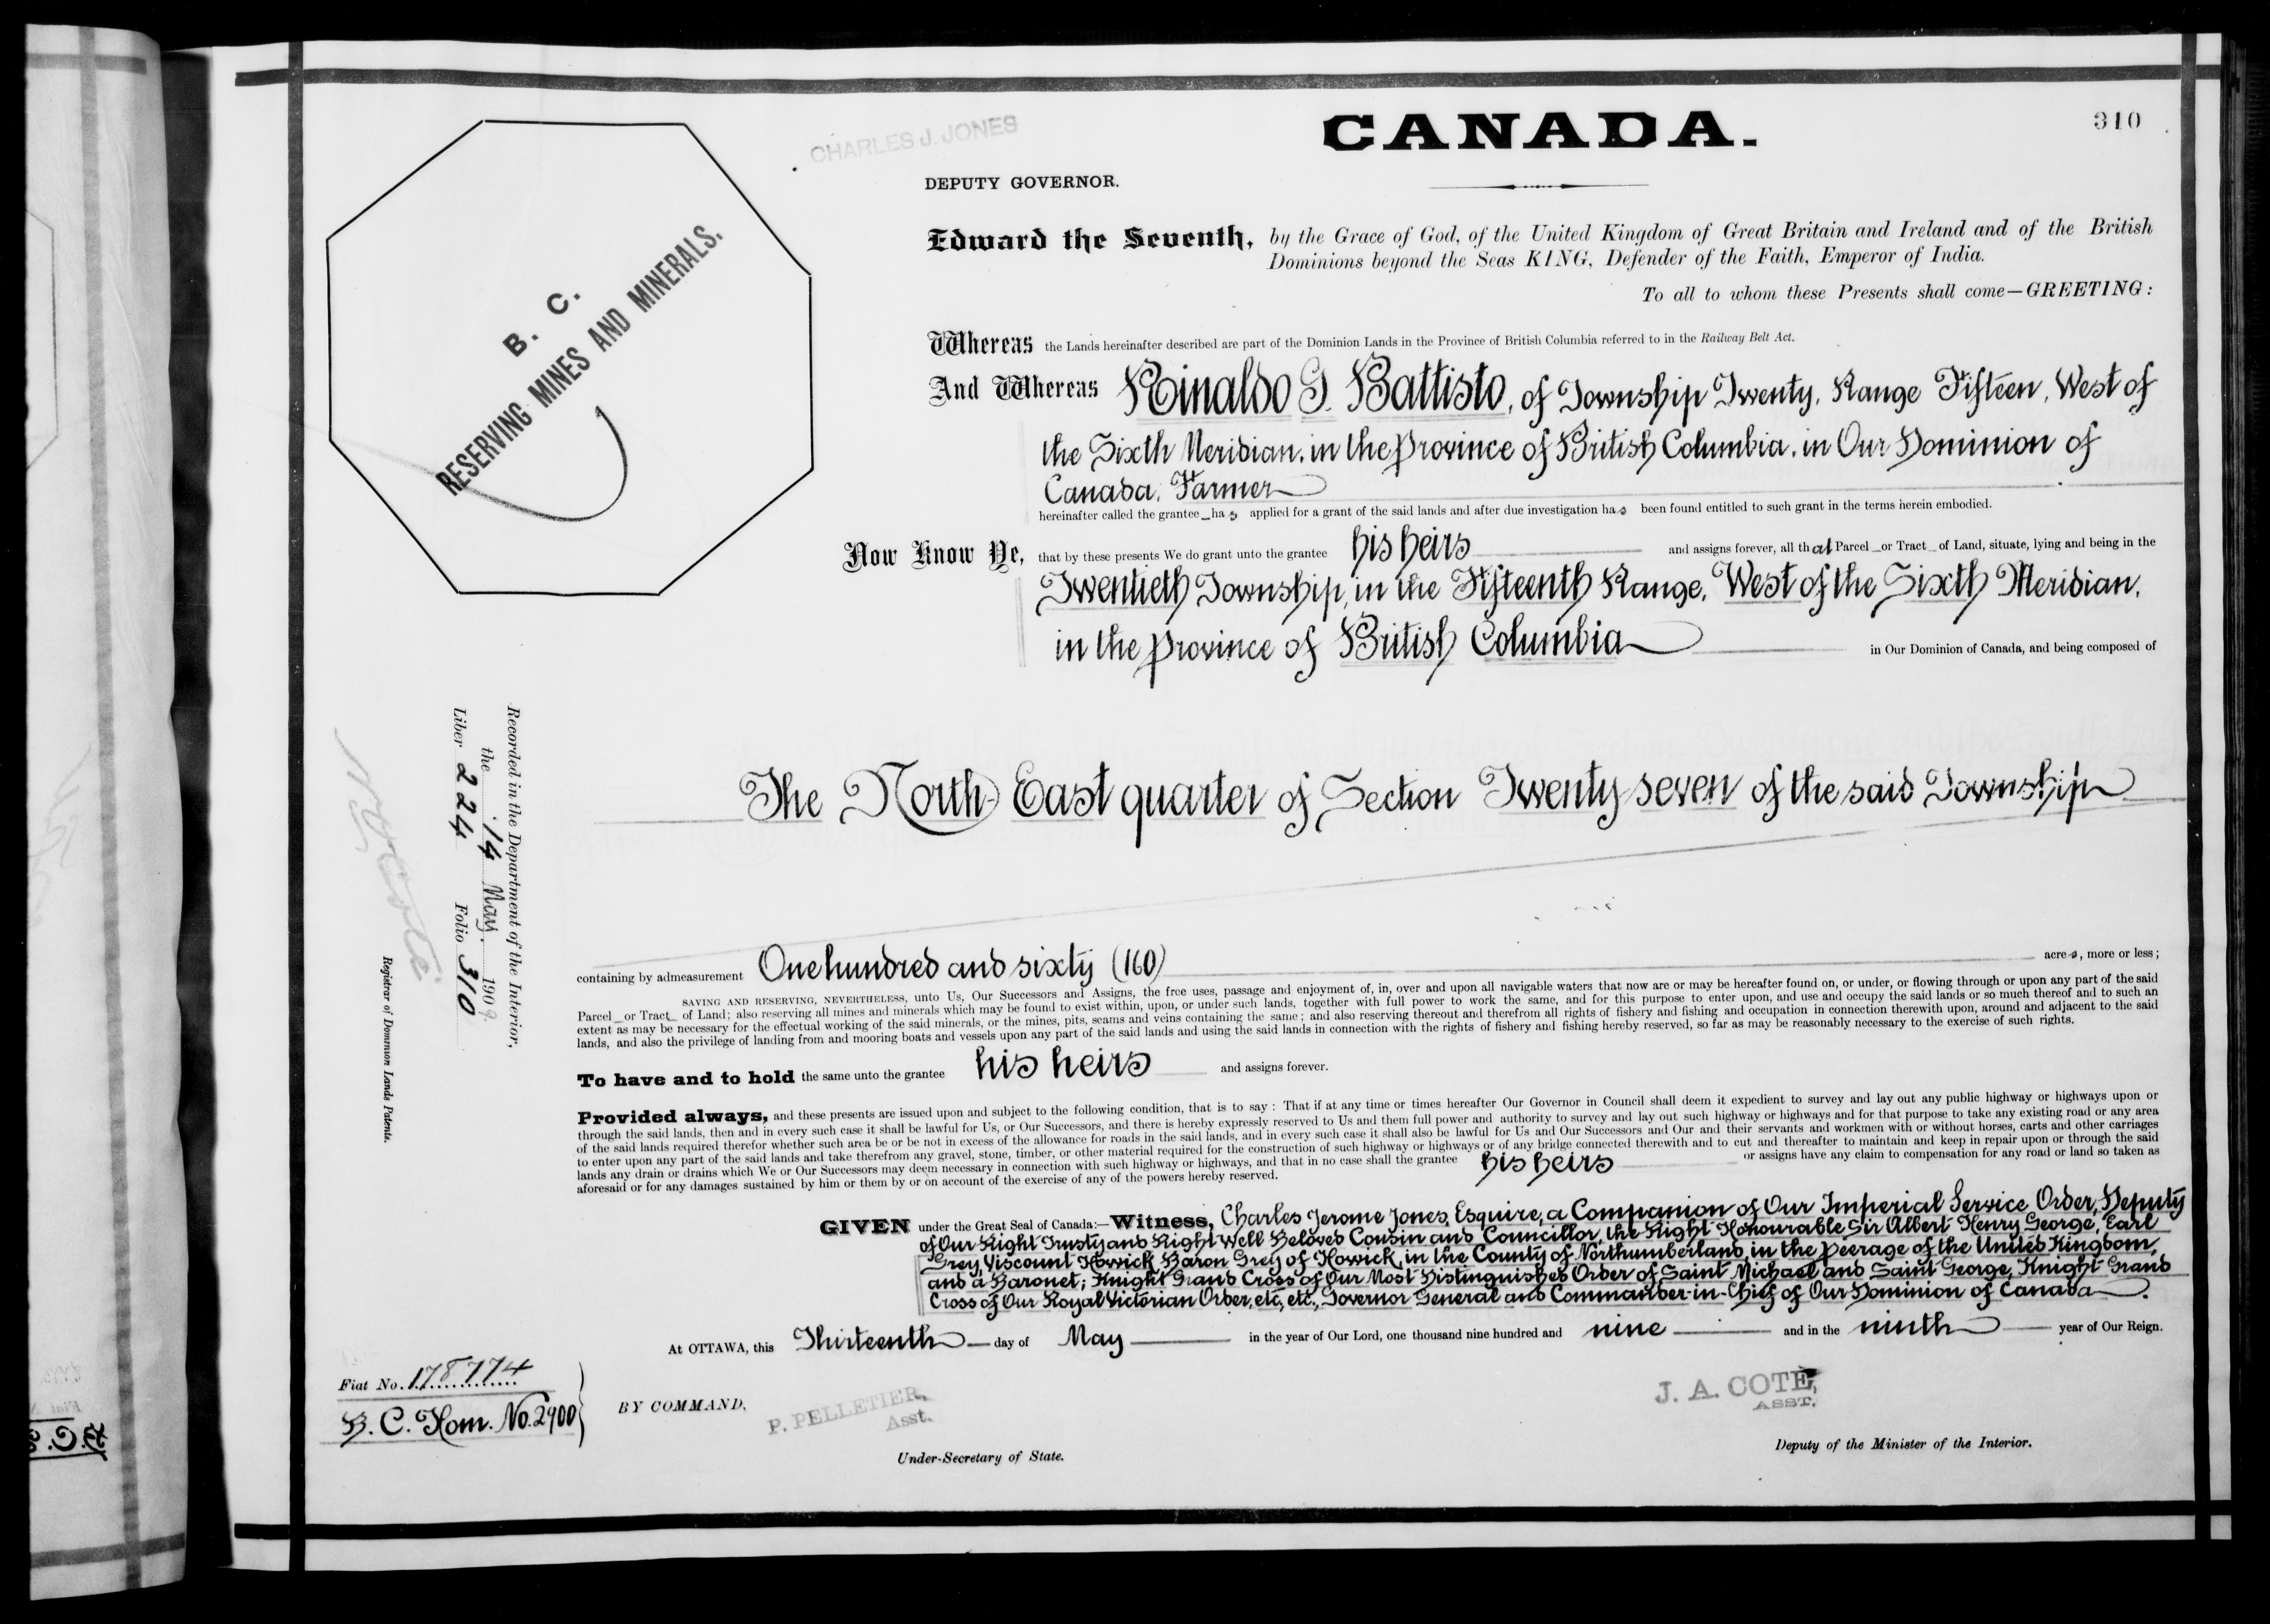 310
CHARLES J. JONES
CANADA.
DEPUTY GOVERNOR.
B. C.
RESERVING MINES AND MINERALS.
Edward the Seventh, by the Grace of God, of the United Kingdom of Great Britain and Ireland and of the British
Dominions beyond the Seas KING, Defender of the Faith, Emperor of India.
To all to whom these Presents shall come—GREETING:
Whereas the Lands hereinafter described are part of the Dominion Lands in the Province of British Columbia referred to in the Railway Belt Act.
And Whereas Rinaldo G. Battisto, of Township Twenty, Range Fifteen, West of
the Sixth Meridian, in the Province of British Columbia, in Our Dominion of
Canada, Farmer
hereinafter called the grantee has applied for a grant of the said lands and after due investigation has been found entitled to such grant in the terms herein embodied.
Now Know Ye, that by these presents We do grant unto the grantee his heirs and assigns forever, all that Parcel or Tract of Land, situate, lying and being in the
Twentieth Township, in the Fifteenth Range, West of the Sixth Meridian,
in the Province of British Columbia in Our Dominion of Canada, and being composed of
The North East quarter of Section Twenty seven of the said Township
containing by admeasurement One hundred and sixty (160) acres, more or less;
SAVING AND RESERVING, NEVERTHELESS, unto Us, Our Successors and Assigns, the free uses, passage and enjoyment of, in, over and upon all navigable waters that now are or may be hereafter found on, or under, or flowing through or upon any part of the said
Parcel or Tract of Land; also reserving all mines and minerals which may be found to exist within, upon, or under such lands, together with full power to work the same, and for this purpose to enter upon, and use and occupy the said lands or so much thereof and to such an
extent as may be necessary for the effectual working of the said minerals, or the mines, pits, seams and veins containing the same; and also reserving thereout and therefrom all rights of fishery and fishing and occupation in connection therewith upon, around and adjacent to the said
lands, and also the privilege of landing from and mooring boats and vessels upon any part of the said lands and using the said lands in connection with the rights of fishery and fishing hereby reserved, so far as may be reasonably necessary to the exercise of such rights.
To have and to hold the same unto the grantee his heirs and assigns forever.
Provided always, and these presents are issued upon and subject to the following condition, that is to say: That if at any time or times hereafter Our Governor in Council shall deem it expedient to survey and lay out any public highway or highways upon or
through the said lands, then and in every such case it shall be lawful for Us, or Our Successors, and there is hereby expressly reserved to Us and them full power and authority to survey and lay out such highway or highways and for that purpose to take any existing road or any area
of the said lands required therefor whether such area be or be not in excess of the allowance for roads in the said lands, and in every such case it shall also be lawful for Us and Our Successors and Our and their servants and workmen with or without horses, carts and other carriages
to enter upon any part of the said lands and take therefrom any gravel, stone, timber, or other material required for the construction of such highway or highways or of any bridge connected therewith and to cut and thereafter to maintain and keep in repair upon or through the said
lands any drain or drains which We or Our Successors may deem necessary in connection with such highway or highways, and that in no case shall the grantee his heirs or assigns have any claim to compensation for any road or land so taken as
aforesaid or for any damages sustained by him or them by or on account of the exercise of any of the powers hereby reserved.
GIVEN under the Great Seal of Canada:—Witness, Charles Jerome Jones, Esquire, a Companion of Our Imperial Service Order, Deputy
of Our Right Trusty and Right Well Beloved Cousin and Councillor, the Right Honourable Sir Albert Henry George, Earl
Grey, Viscount Howick, Baron Grey of Howick, in the County of Northumberland, in the Peerage of the United Kingdom,
and a Baronet; Knight Grand Cross of Our Most Distinguished Order of Saint Michael and Saint George, Knight Grand
Cross of Our Royal Victorian Order, etc, etc., Governor General and Commander-in-Chief of Our Dominion of Canada.
At OTTAWA, this Thirteenth day of May in the year of Our Lord, one thousand nine hundred and nine and in the ninth year of Our Reign.
Fiat No. 178774
B. C. Hom. No. 2900
BY COMMAND,
P. PELLETIER,
Asst.
Under-Secretary of State.
J. A. COTÉ,
ASST.
Deputy of the Minister of the Interior.
Recorded in the Department of the Interior,
the 14 May. 1909
Liber 224 Folio 310
Registrar of Dominion Lands Patents.